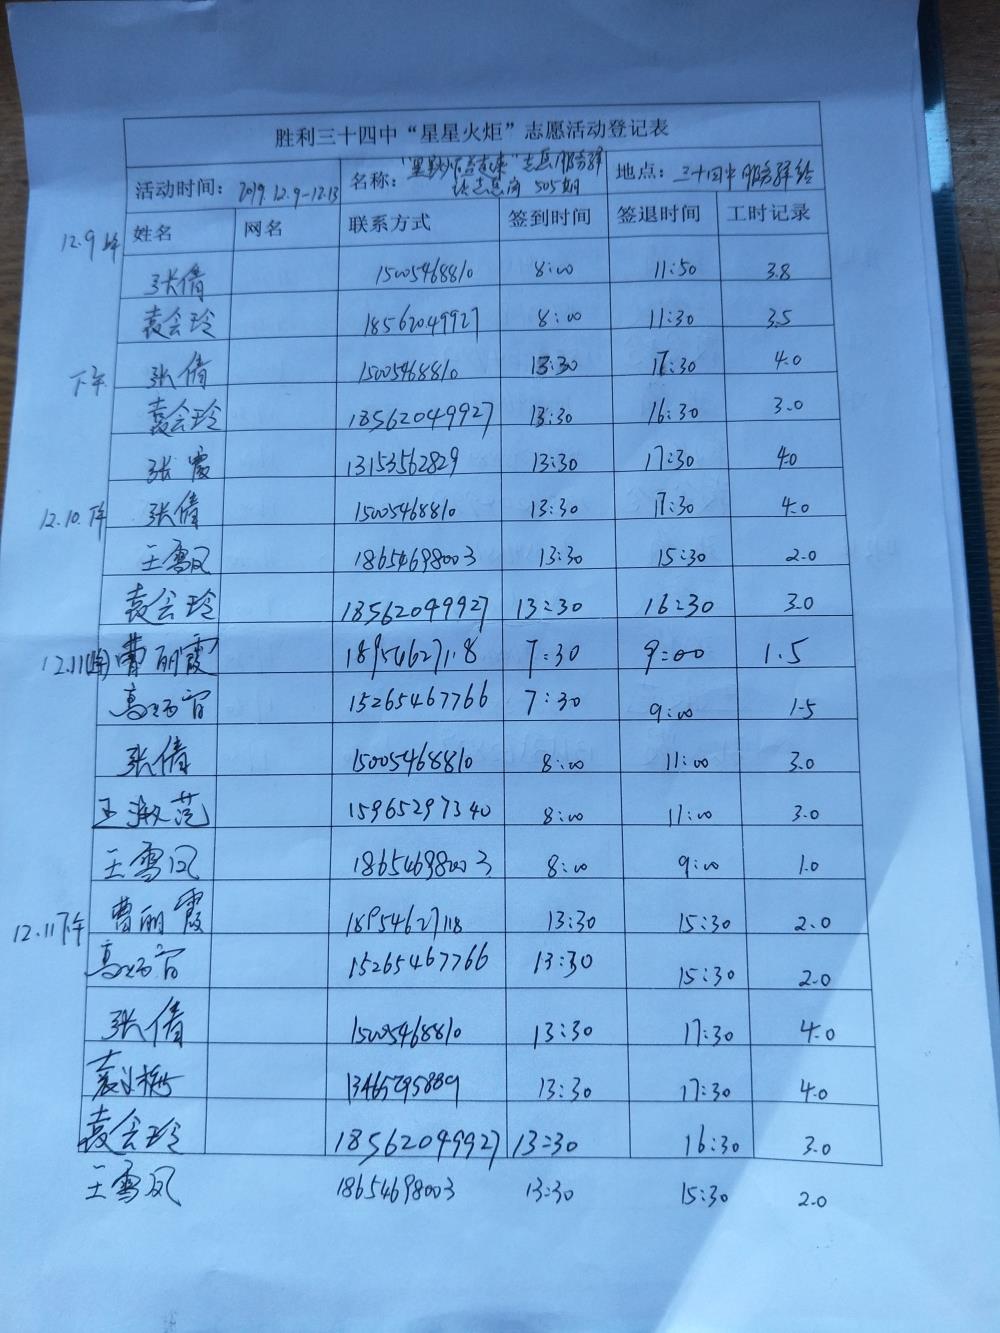 胜利三十四中“星星火炬”志愿活动登记表
活动时间: 2019.12.9-12.13 名称: 志愿服务 505期 地点: 三十四中服务驿站
姓名 网名 联系方式 签到时间 签退时间 工时记录
12.9 上午
张倩 15005468810 8:00 11:50 3.8
袁会玲 18562049927 8:00 11:30 3.5
下午 张倩 15005468810 13:30 17:30 4.0
袁会玲 18562049927 13:30 16:30 3.0
张霞 13153562829 13:30 17:30 4.0
12.10.下午 张倩 15005468810 13:30 17:30 4.0
王雪凤 18654698003 13:30 15:30 2.0
袁会玲 18562049927 13:30 16:30 3.0
12.11 曹丽霞 18954627118 7:30 9:00 1.5
高 15265467766 7:30 9:00 1.5
张倩 15005468810 8:00 11:00 3.0
王淑范 15965297340 8:00 11:00 3.0
王雪凤 18654698003 8:00 9:00 1.0
12.11下午 曹丽霞 18954627118 13:30 15:30 2.0
高 15265467766 13:30 15:30 2.0
张倩 15005468810 13:30 17:30 4.0
13465295889 13:30 17:30 4.0
袁会玲 18562049927 13:30 16:30 3.0
王雪凤 18654698003 13:30 15:30 2.0